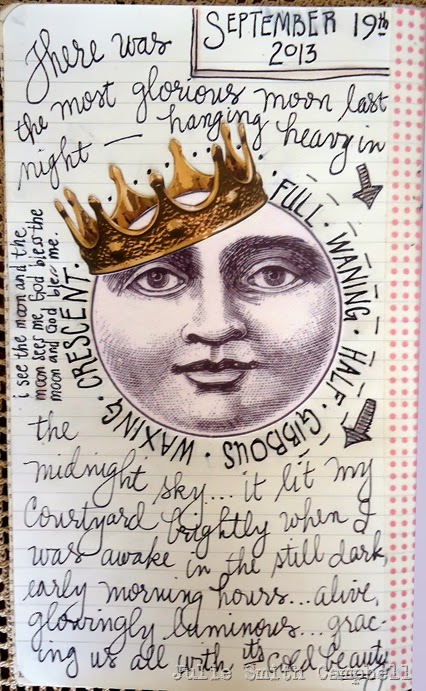 SEPTEMBER 19th
2013
There was
the most glorious moon last
night — hanging heavy in
FULL · WANING · HALF · GIBBOUS · WAXING · CRESCENT ·
i see the moon and the
moon sees me, God bless the
moon and God bless me.
the
midnight sky... it lit my
courtyard brightly when I
was awake in the still dark,
early morning hours... alive,
glowingly luminous... grac-
ing us all with it's cold beauty
Julie Smith Campbell